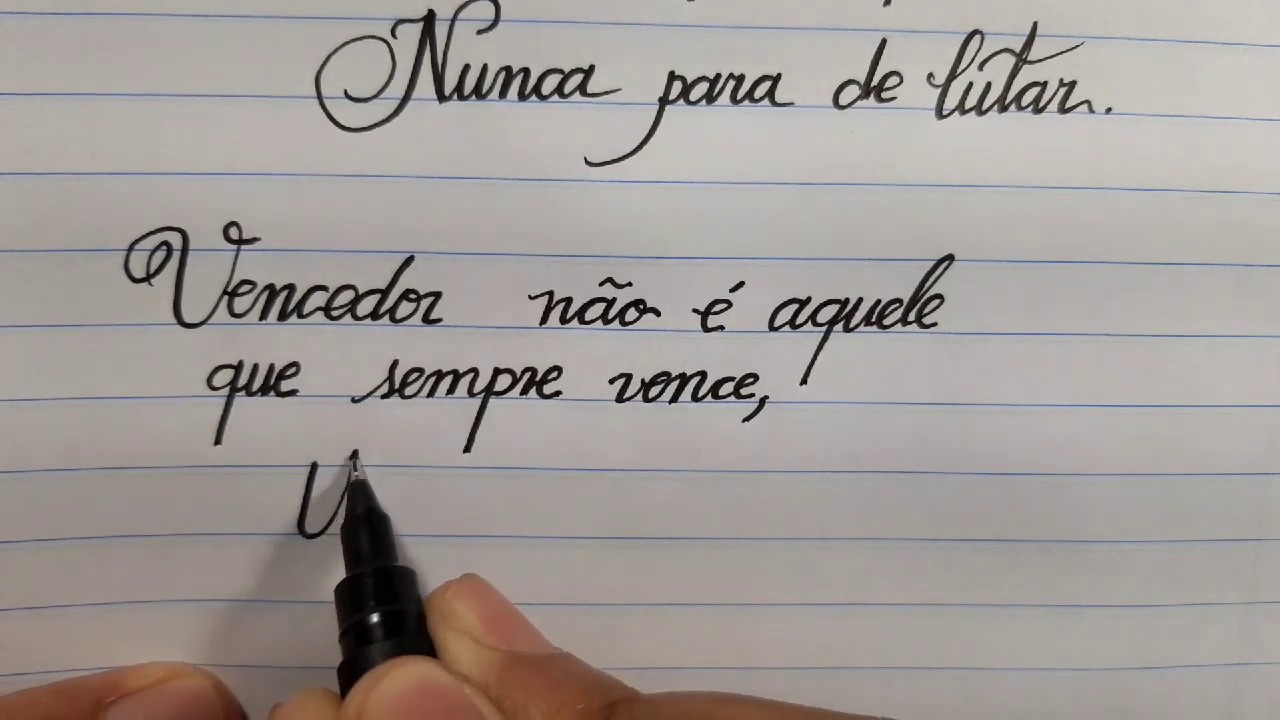 Nunca para de lutar.
Vencedor não é aquele
que sempre vence,